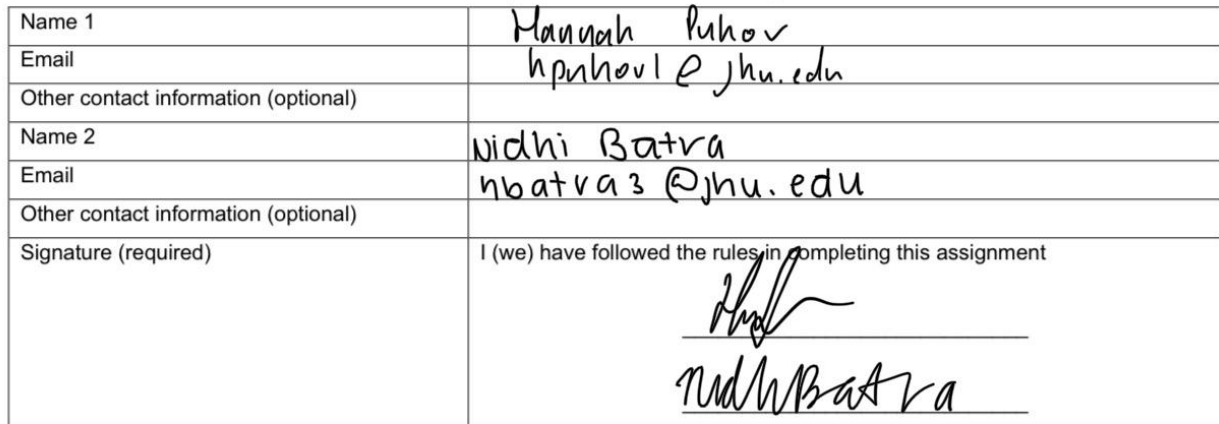 Name 1 Hannah Puhov
Email hpuhov1@jhu.edu
Other contact information (optional)
Name 2 Nidhi Batra
Email nbatra3@jhu.edu
Other contact information (optional)
Signature (required) I (we) have followed the rules in completing this assignment
Nidhi Batra